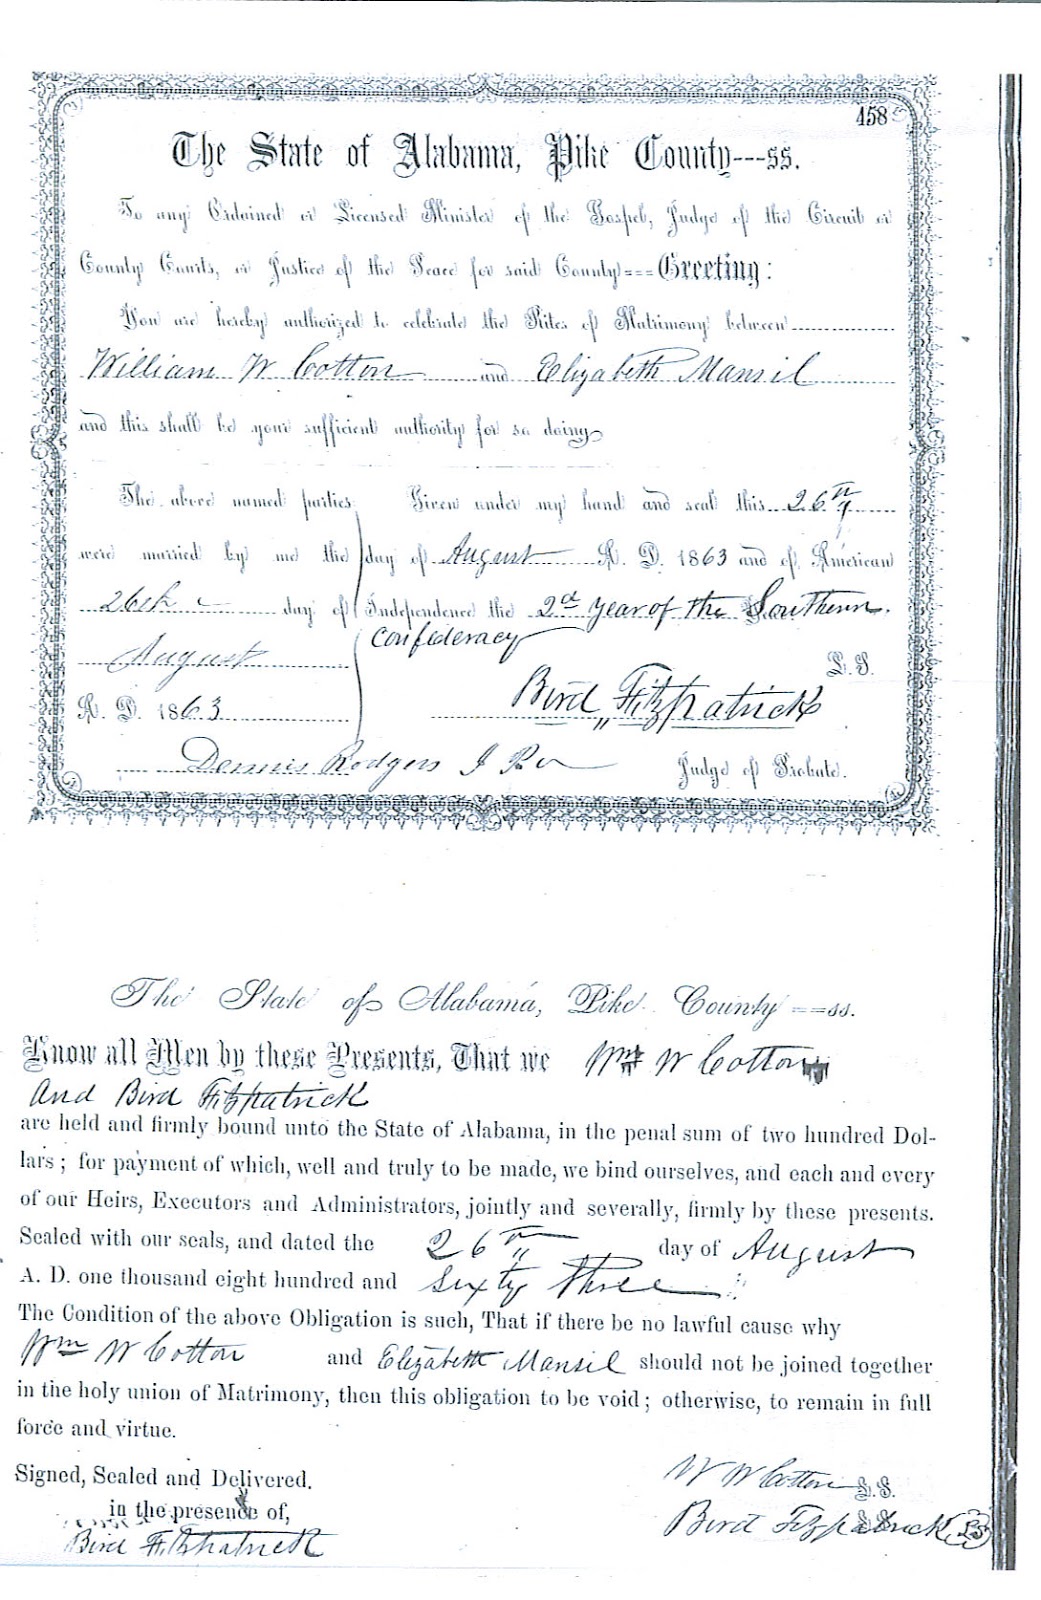 458
The State of Alabama, Pike County---ss.
To any Ordained or Licensed Minister of the Gospel, Judge of the Circuit or
County Courts, or Justice of the Peace for said County===Greeting:
You are hereby authorized to celebrate the Rites of Matrimony between
William W Cotton and Elizabeth Mansil
and this shall be your sufficient authority for so doing
The above named parties
were married by me the
26th day of
August
A. D. 1863
Dennis Rodgers
Given under my hand and seal this 26th
day of August A. D. 1863 and of American
Independence the 2d year of the Southern
Confederacy
L. S.
Bird Fitzpatrick
Judge of Probate.
The State of Alabama, Pike County ===ss.
Know all Men by these Presents, That we Wm W Cotton
and Bird Fitzpatrick
are held and firmly bound unto the State of Alabama, in the penal sum of two hundred Dol-
lars; for payment of which, well and truly to be made, we bind ourselves, and each and every
of our Heirs, Executors and Administrators, jointly and severally, firmly by these presents.
Sealed with our seals, and dated the 26th day of August
A. D. one thousand eight hundred and Sixty three
The Condition of the above Obligation is such, That if there be no lawful cause why
Wm W Cotton and Elizabeth Mansil should not be joined together
in the holy union of Matrimony, then this obligation to be void; otherwise, to remain in full
force and virtue.
Signed, Sealed and Delivered.
in the presence of,
Bird Fitzpatrick
W W Cotton L.S.
Bird Fitzpatrick L.S.